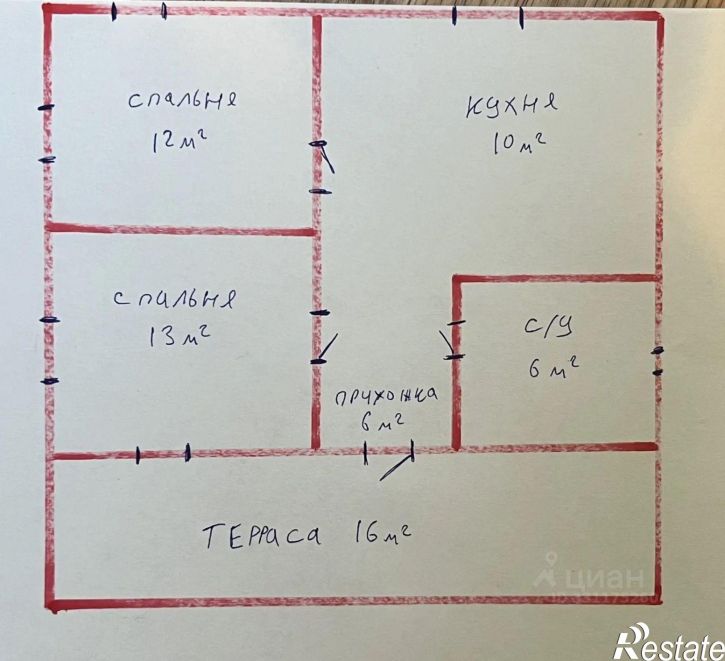 спальня
12 м²
кухня
10 м²
спальня
13 м²
с/у
6 м²
прихожка
6 м²
ТЕРРАСА 16 м²
циан
Restate